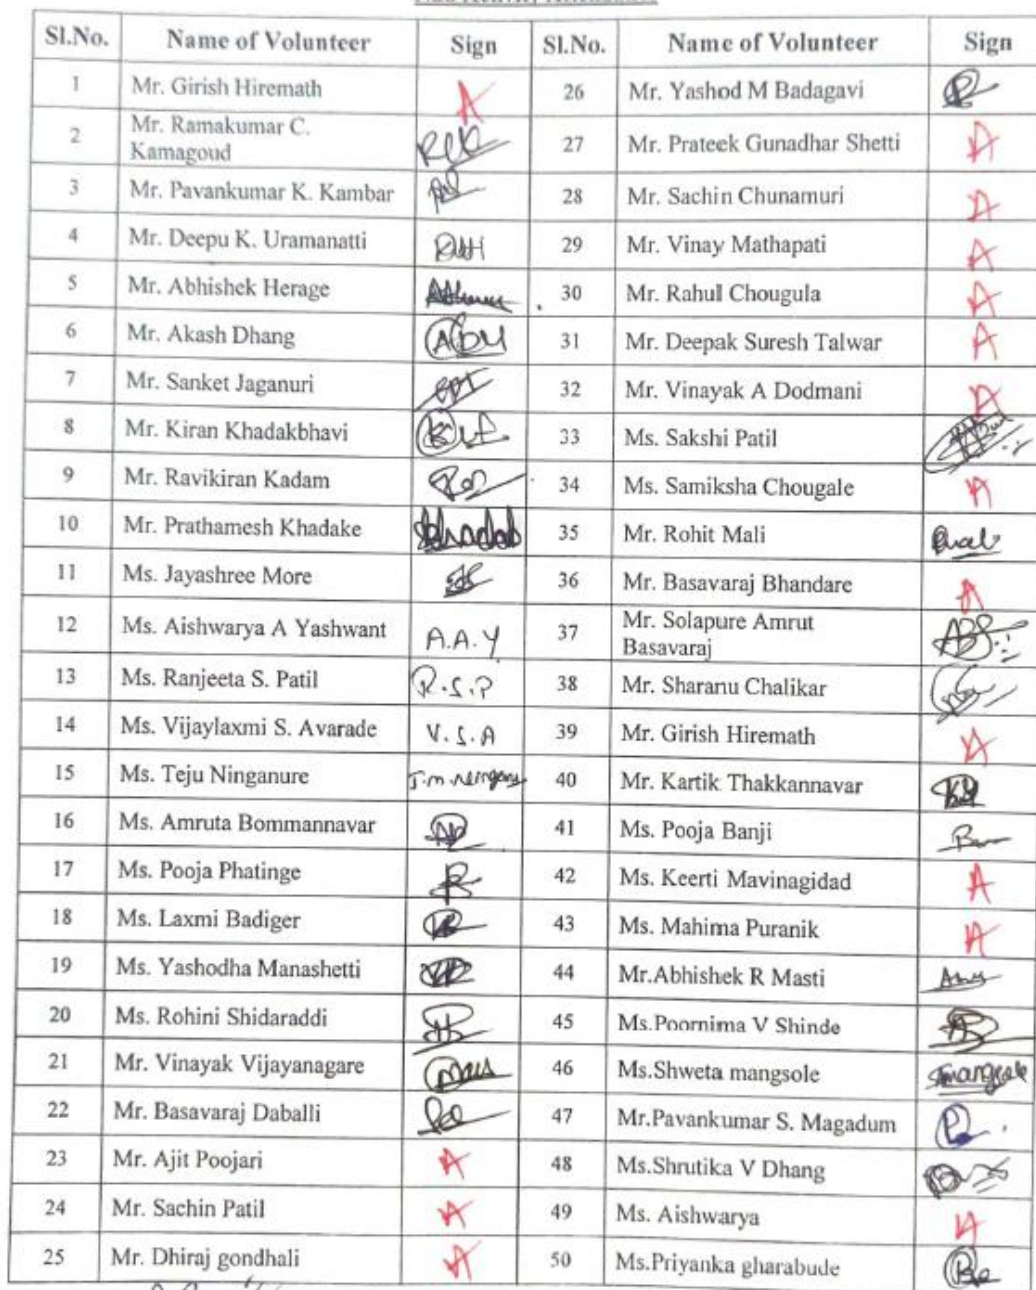 Sl.No. Name of Volunteer Sign Sl.No. Name of Volunteer Sign
1 Mr. Girish Hiremath A 26 Mr. Yashod M Badagavi
2 Mr. Ramakumar C.
Kamagoud 27 Mr. Prateek Gunadhar Shetti A
3 Mr. Pavankumar K. Kambar 28 Mr. Sachin Chunamuri A
4 Mr. Deepu K. Uramanatti 29 Mr. Vinay Mathapati A
5 Mr. Abhishek Herage 30 Mr. Rahul Chougula A
6 Mr. Akash Dhang 31 Mr. Deepak Suresh Talwar A
7 Mr. Sanket Jaganuri 32 Mr. Vinayak A Dodmani A
8 Mr. Kiran Khadakbhavi 33 Ms. Sakshi Patil
9 Mr. Ravikiran Kadam 34 Ms. Samiksha Chougale A
10 Mr. Prathamesh Khadake 35 Mr. Rohit Mali
11 Ms. Jayashree More 36 Mr. Basavaraj Bhandare A
12 Ms. Aishwarya A Yashwant A.A.Y 37 Mr. Solapure Amrut
Basavaraj
13 Ms. Ranjeeta S. Patil R.S.P 38 Mr. Sharanu Chalikar
14 Ms. Vijaylaxmi S. Avarade V.S.A 39 Mr. Girish Hiremath A
15 Ms. Teju Ninganure 40 Mr. Kartik Thakkannavar
16 Ms. Amruta Bommannavar 41 Ms. Pooja Banji
17 Ms. Pooja Phatinge 42 Ms. Keerti Mavinagidad A
18 Ms. Laxmi Badiger 43 Ms. Mahima Puranik A
19 Ms. Yashodha Manashetti 44 Mr.Abhishek R Masti
20 Ms. Rohini Shidaraddi 45 Ms.Poornima V Shinde
21 Mr. Vinayak Vijayanagare 46 Ms.Shweta mangsole
22 Mr. Basavaraj Daballi 47 Mr.Pavankumar S. Magadum
23 Mr. Ajit Poojari A 48 Ms.Shrutika V Dhang
24 Mr. Sachin Patil A 49 Ms. Aishwarya A
25 Mr. Dhiraj gondhali A 50 Ms.Priyanka gharabude